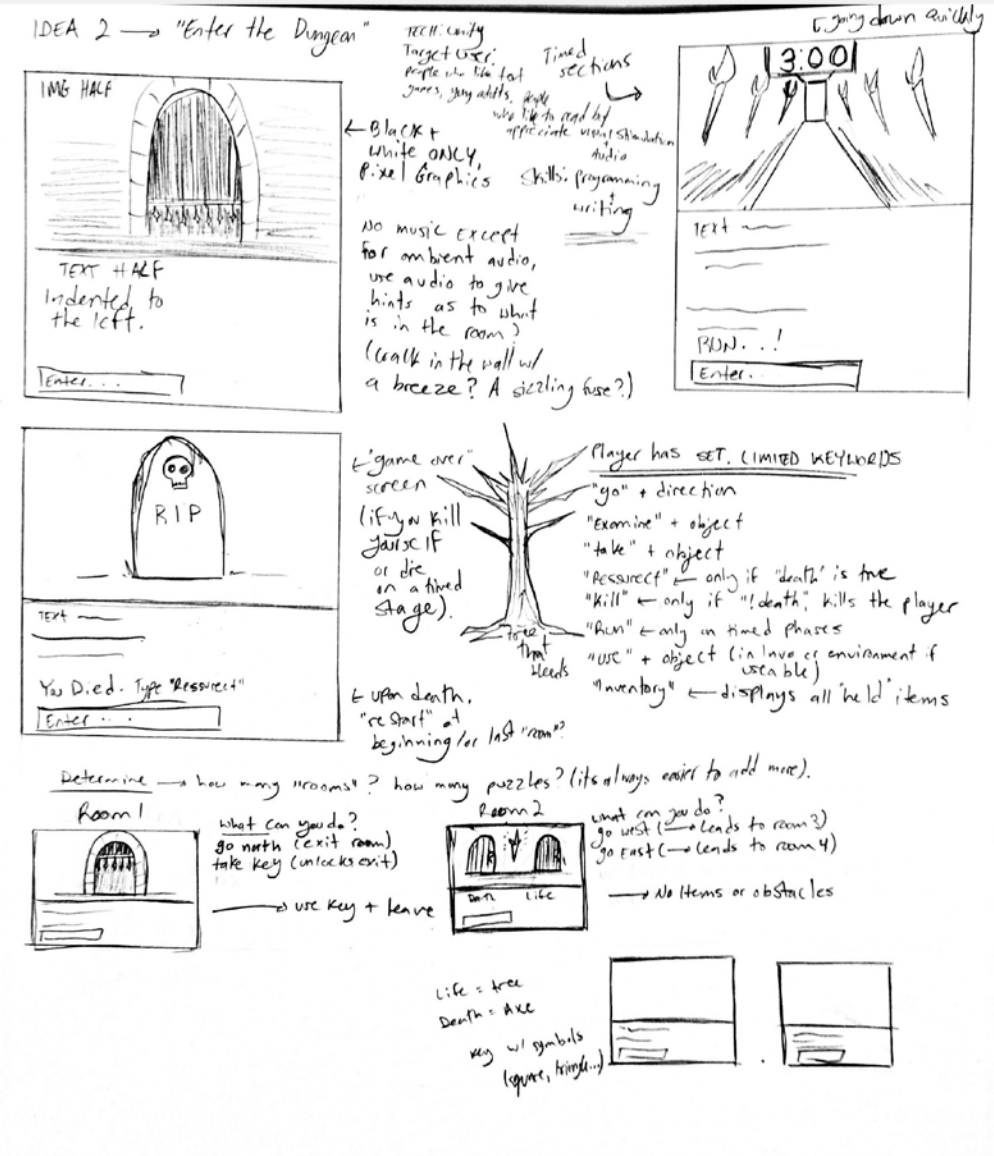 IDEA 2 → "Enter the Dungeon"
TECH: Unity
Target User:
people who like text
games, young adults, people
who like to read but
appriciate visual stimulation
+
Audio
Skills: programming
+
writing
Timed
sections
going down quickly
3:00
TEXT
RUN...!
Enter.
IMG HALF
TEXT HALF
Indented to
the left.
Enter...
← Black +
white ONLY,
Pixel Graphics
No music except
for ambient audio,
use audio to give
hints as to what
is in the room?
(crack in the wall w/
a breeze? A sizzling fuse?)
RIP
TEXT
You Died. Type "Ressurect"
Enter...
← "game over"
screen
(if you kill
yourself
or die
on a timed
stage).
← upon death,
"restart" at
beginning/or last "room"?
tree
that
bleeds
Player has SET, LIMITED KEYWORDS
"go" + direction
"Examine" + object
"take" + object
"Ressurect" ← only if "death" is true
"Kill" ← only if "!death", kills the player
"Run" ← only on timed phases
"use" + object (in inve or environment if
useable)
"Inventory" ← displays all "held" items
Determine → how many "rooms"? how many puzzles? (its always easier to add more).
Room 1
What can you do?
go north (exit room)
take key (unlocks exit)
→ use key + leave
Room 2
Death Life
what can you do?
go west (→ Leads to room 3)
go East (→ Leads to room 4)
→ No Items or obstacles
Life = tree
Death = Axe
key w/ symbols
(square, triangle...)